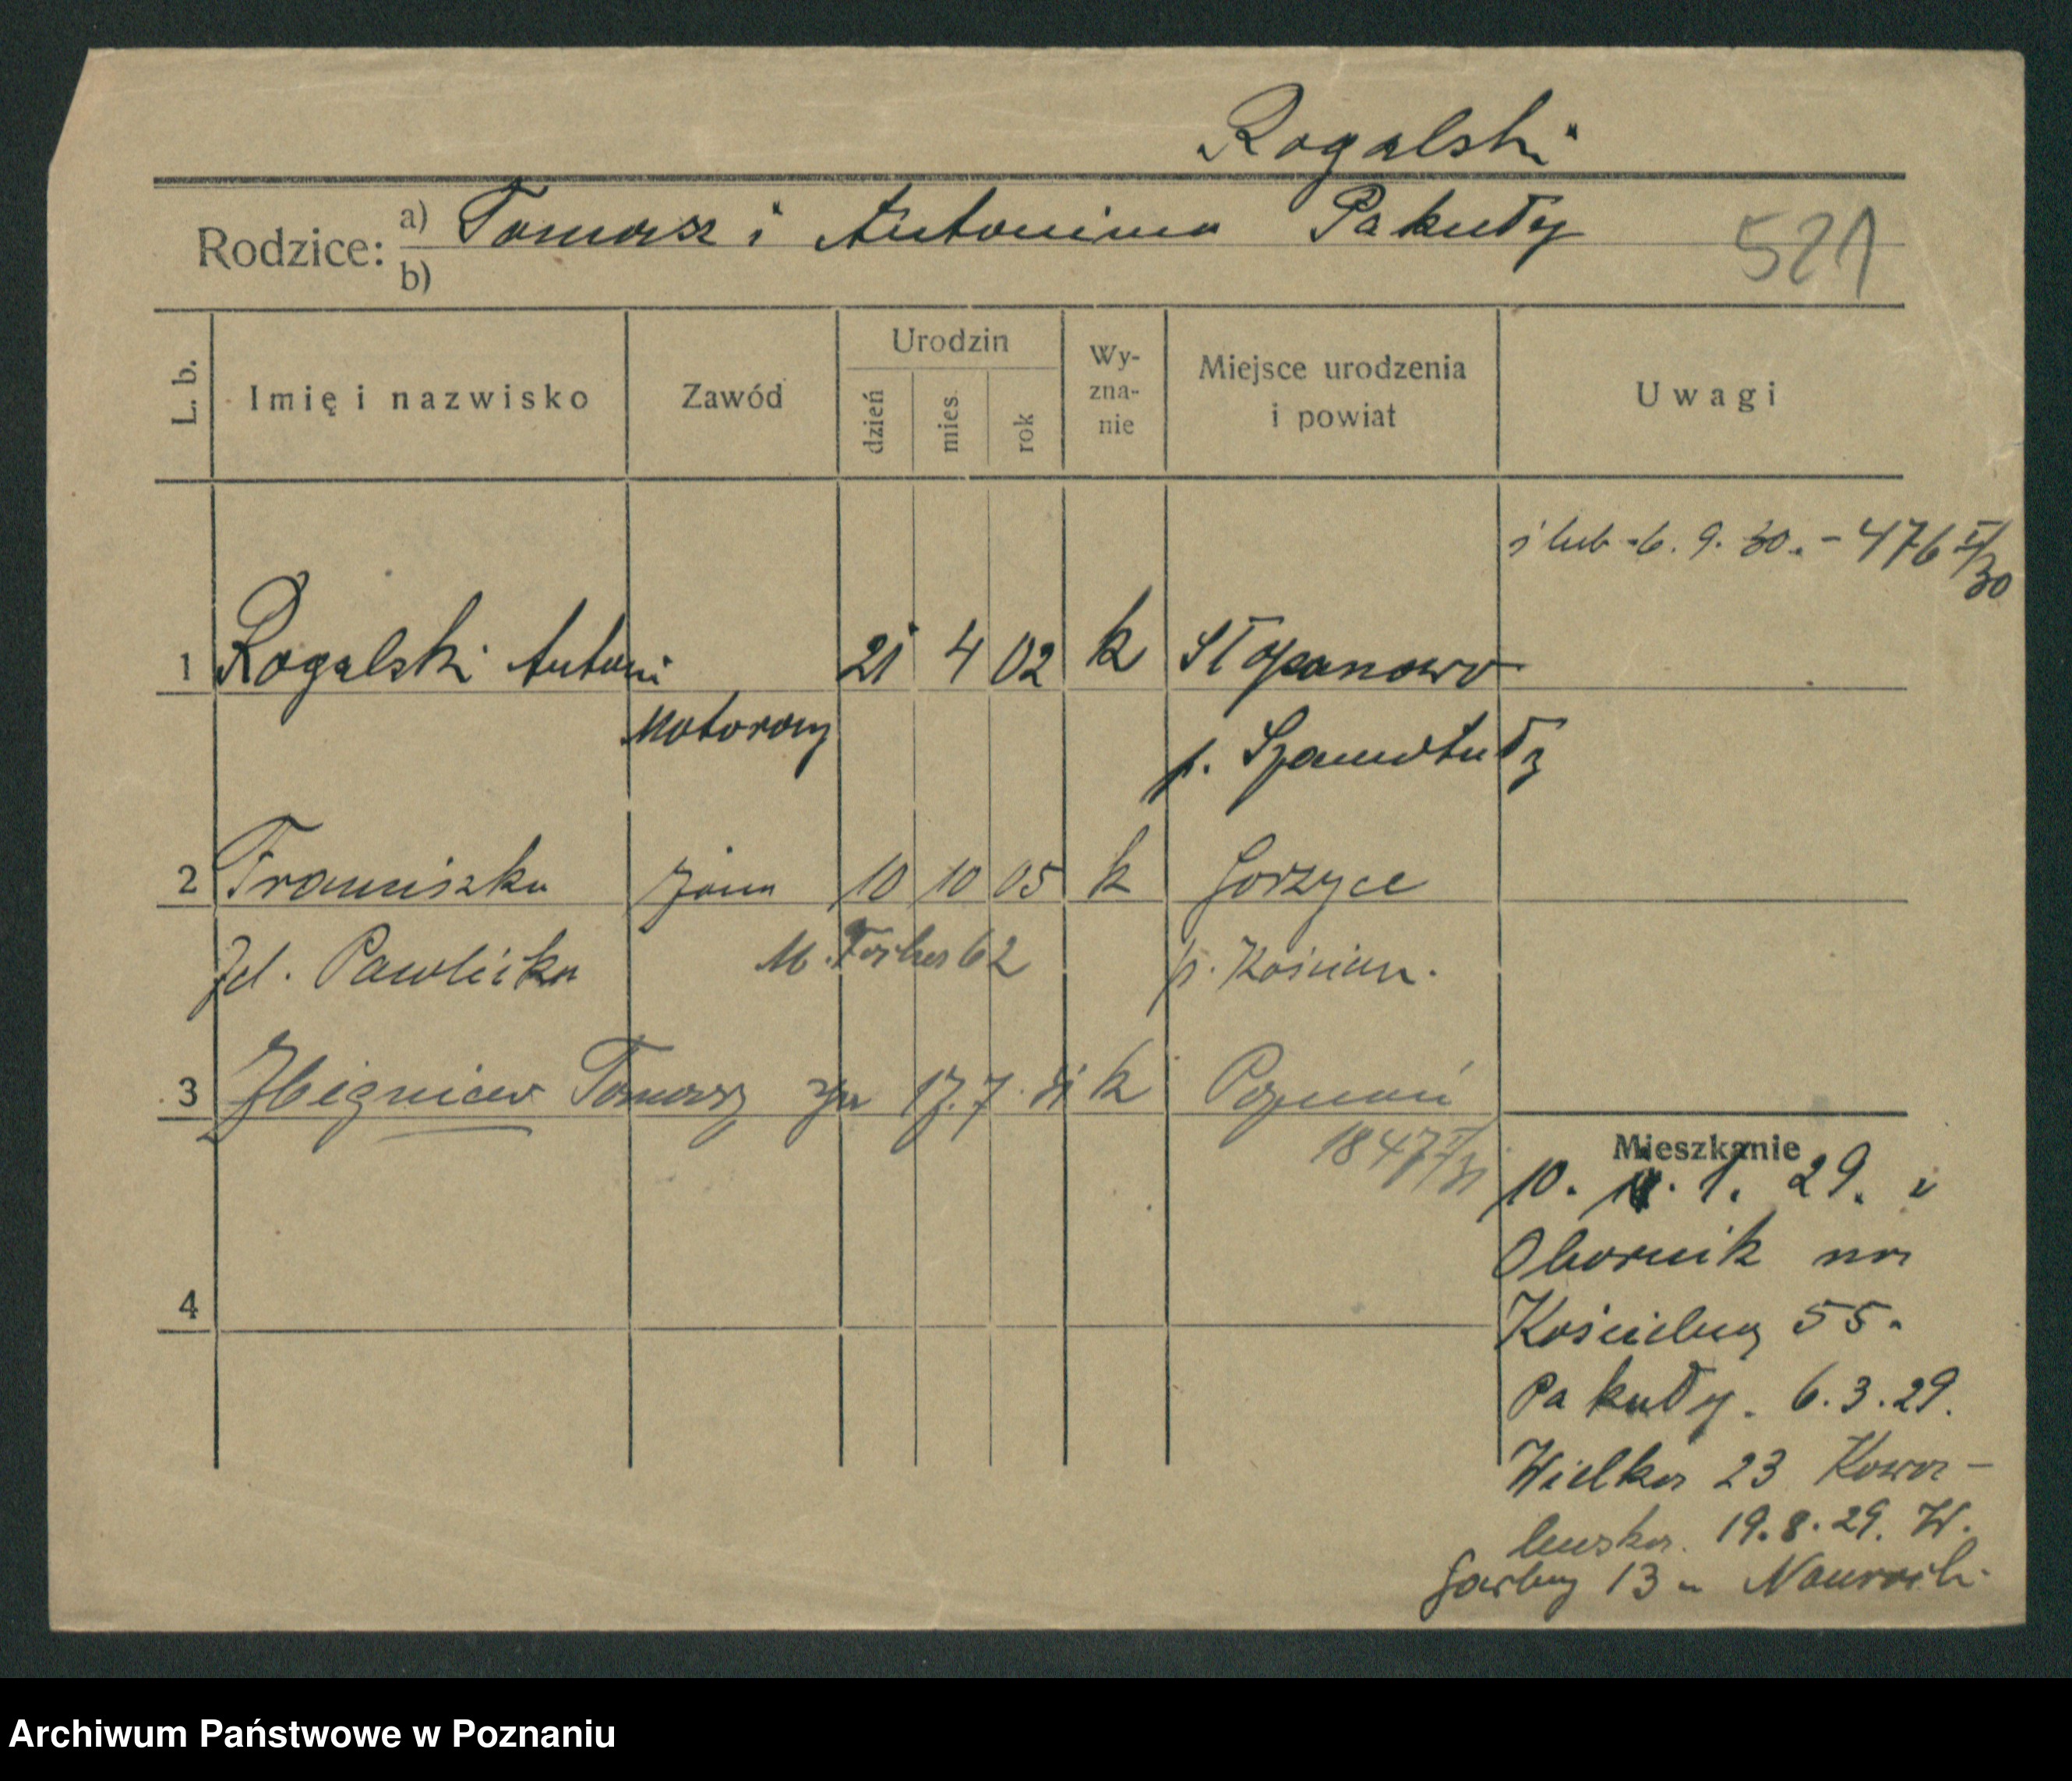 Rogalski
Rodzice: a) Tomasz i Antonina Pakuły
b)
521
L. b.
Imię i nazwisko
Zawód
Urodzin
dzień
mies.
rok
Wy-
zna-
nie
Miejsce urodzenia
i powiat
Uwagi
ślub 6. 9. 30. - 476 I/30
1 Rogalski Antoni 21 4 02 k Stopanowo
Motorowy
p. Szamotuły
2 Franciszka żona 10 10 05 k Gorzyce
Zd. Pawlicka M. 62 p. Kościan.
3 Zbigniew Tomasz syn 17. 7. 31 k Poznań
1847 I/31
4
Mieszkanie
10. 1. 29. z
Obornik na
Kościelną 55.
Pakuły. 6.3.29.
Wielka 23 Kowa-
lewska. 19.8.29. W.
Garbary 13 u
Archiwum Państwowe w Poznaniu